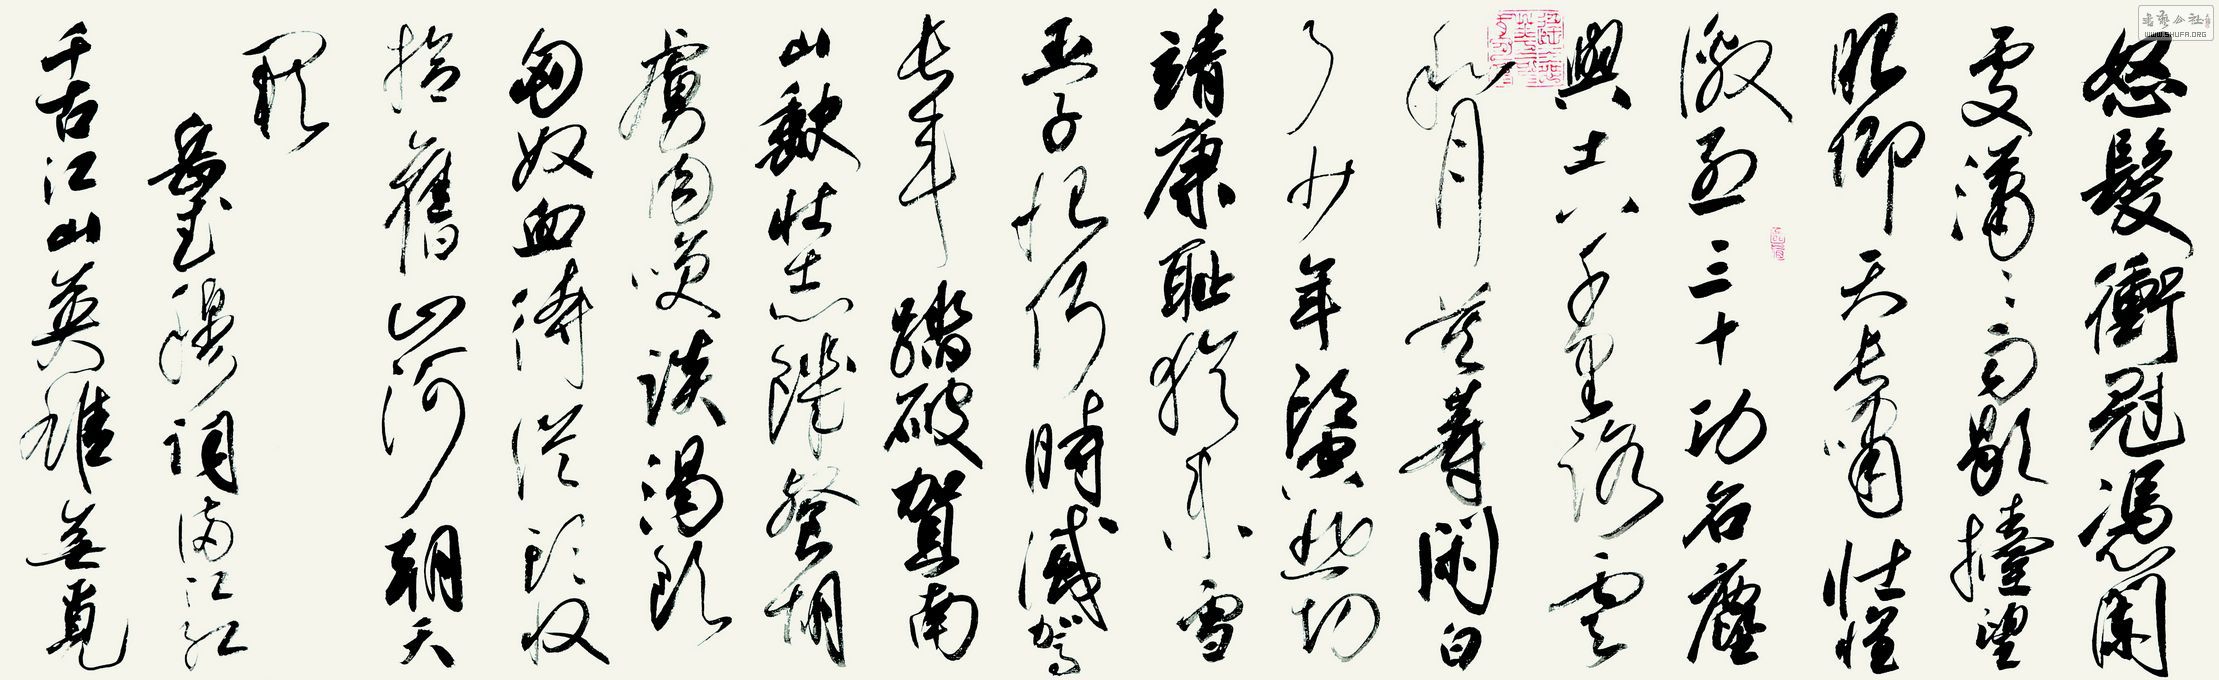 怒髮衝冠憑闌
處瀟々雨歇擡望
眼仰天長嘯壯懷
激烈三十功名塵
與土八千里路雲
和月莫等閑白
了少年悲切
靖康恥猶未雪
臣子恨何時滅駕
長車踏破賀南
山缺壯志飢餐胡
虜肉笑談渴飲
匈奴血待從頭收
拾舊山河朝天
闕
岳武穆詞滿江紅
千古江山英雄無覓
书艺公社
WWW.SHUFA.ORG